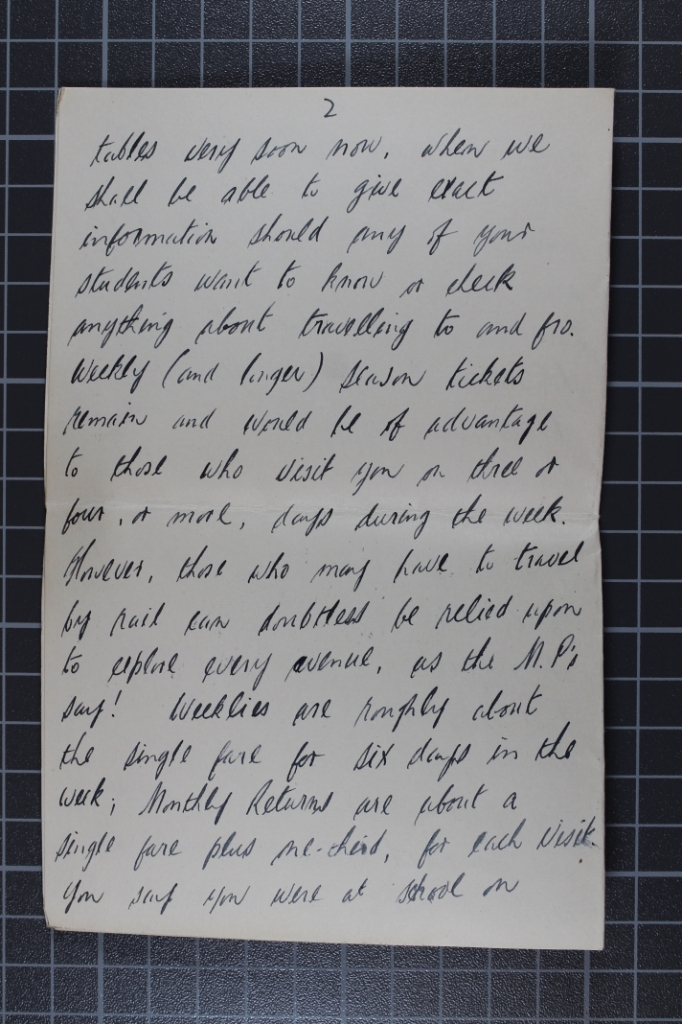 2
tables very soon now, when we
shall be able to give exact
information should any of your
students want to know or check
anything about travelling to and fro.
Weekly (and longer) season tickets
remain and would be of advantage
to those who visit you on three or
four, or more, days during the week.
However, those who may have to travel
by rail can doubtless be relied upon
to explore every avenue, as the M.P's
say! Weeklies are roughly about
the single fare for six days in the
week; Monthly Returns are about a
single fare plus one-third, for each visit.
You say you were at school on